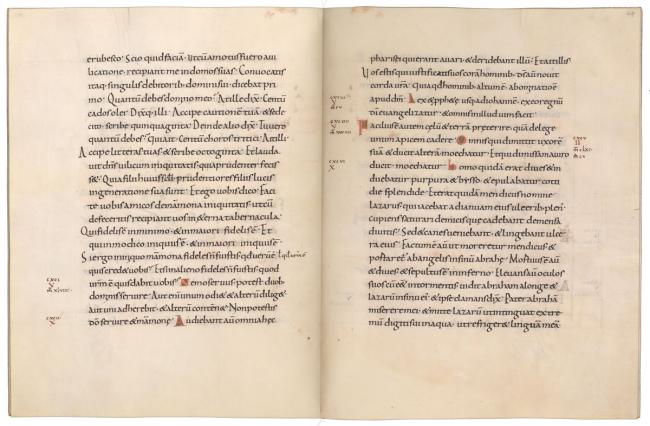 erubesco. Scio quid faciã. ut cũ amotus fuero a uil
licatione. recipiant me in domos suas. Conuocatis
itaq. singulis debitorib. domini sui. dicebat pri
mo. Quantũ debes domino meo. At ille dix̃. Centũ
cados olei. Dixq. illi. Accipe cautionẽ tuã. & sede
cito. scribe quinquaginta. Deinde alio dix̃. Tu uero
quantũ debes. Qui ait. Centũ choros tritici. Ait illi.
Accipe litteras tuas. & scribe octoginta. Et lauda
uit dñs uilicum iniquitatis. quia prudenter fecis
s&. Quia filii huius scl̃i. prudentiores filiis lucis
in generatione sua sunt. Et ego uobis dico. Faci
te uobis amicos de mãmona iniquitatis. ut cũ
defeceritis recipiant uos in &erna tabernacula.
Qui fidelis ẽ in minimo. & in maiori fidelis ẽ. Et
qui in modico iniquus ẽ. & in maiori iniquus ẽ.
Si ergo in iniquo mãmona fideles ñ fuistis. qd uerũ ẽ
quis cred& uobis. Et si in alieno fideles ñ fuistis. quod
urm̃ ẽ quis dabit uobis. Nemo seruus potest duob.
dominis seruire. Aut eni unum odi& & alterũ dilig&.
aut uni adherebit. & alterũ contẽn&. Non potestis
dõ seruire & mãmonę. Audiebant aũ omnia hęc
pharisei qui erant auari. & deridebant illũ. Et ait illis.
Vos estis qui iustificatis uos corã hominib. ds̃ aũ nouit
corda urã. Quia qd hominib. altum ẽ. abominatio ẽ
apud dm̃. Lex & pph&ę usq. ad iohannẽ. ex eo regnũ
di euangelizatur. & omnis in illud uim facit.
Facilius ẽ autem cęlũ & terrã preterire. quã de lege
unum apicem cadere. Omnis qui dimittit uxorẽ
suã & ducit alterã moechatur. Et qui dimissam a uiro
ducit. moechatur. Homo quidã erat diues. & in
duebatur purpura & bysso. & epulabatur coti
die splendide. Et erat quidã mendicus nomine
lazarus. qui iacebat ad ianuam eius ulceribus plen.
cupiens saturari de micis quę cadebant de mensa
diuitis. Sed & canes ueniebant. & lingebant ulce
ra eius. Factum ẽ aũ ut moreretur mendicus &
portaret ab angelis in sinũ abrahę. Mortuus ẽ aũ
& diues & sepultus ẽ in inferno. Eleuans aũ oculos
suos cũ ẽẽ in tormentis uidit abraham a longe &
lazarũ in sinu ei. & ipse clamans dix̃. Pater abrahã
miserere mei. & mitte lazarũ ut intinguat extre
mũ digiti sui in aqua. ut refriger& linguã meã.